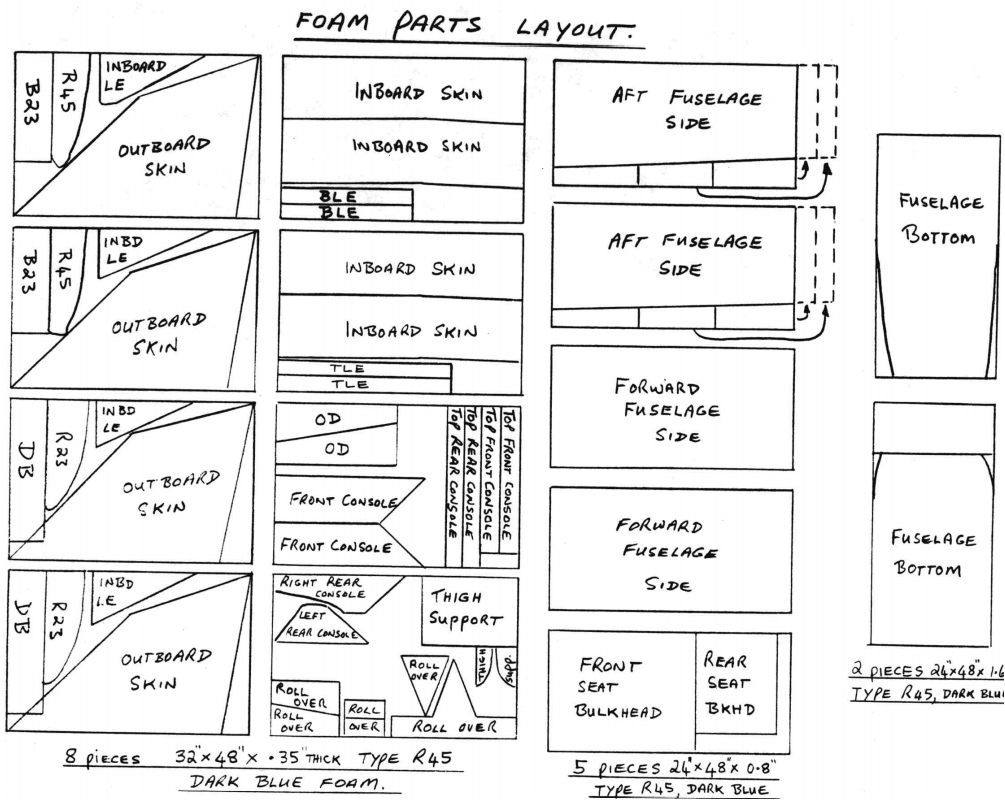 FOAM PARTS LAYOUT.
B23
R45
INBOARD
LE
OUTBOARD
SKIN
B23
R45
INBD
LE
OUTBOARD
SKIN
DB
R23
INBD
LE
OUTBOARD
SKIN
DB
R23
INBD
LE
OUTBOARD
SKIN
INBOARD SKIN
INBOARD SKIN
BLE
BLE
INBOARD SKIN
INBOARD SKIN
TLE
TLE
OD
OD
FRONT CONSOLE
FRONT CONSOLE
TOP REAR CONSOLE
TOP REAR CONSOLE
TOP FRONT CONSOLE
TOP FRONT CONSOLE
RIGHT REAR
CONSOLE
LEFT
REAR CONSOLE
THIGH
SUPPORT
ROLL
OVER
THIGH
SUPP.
ROLL
OVER
ROLL
OVER
ROLL
OVER
ROLL OVER
8 PIECES 32"x48"x .35" THICK TYPE R45
DARK BLUE FOAM.
AFT FUSELAGE
SIDE
AFT FUSELAGE
SIDE
FORWARD
FUSELAGE
SIDE
FORWARD
FUSELAGE
SIDE
FRONT
SEAT
BULKHEAD
REAR
SEAT
BKHD
5 PIECES 24"x48"x 0.8"
TYPE R45, DARK BLUE
FUSELAGE
BOTTOM
FUSELAGE
BOTTOM
2 PIECES 24"x48"x
TYPE R45, DARK